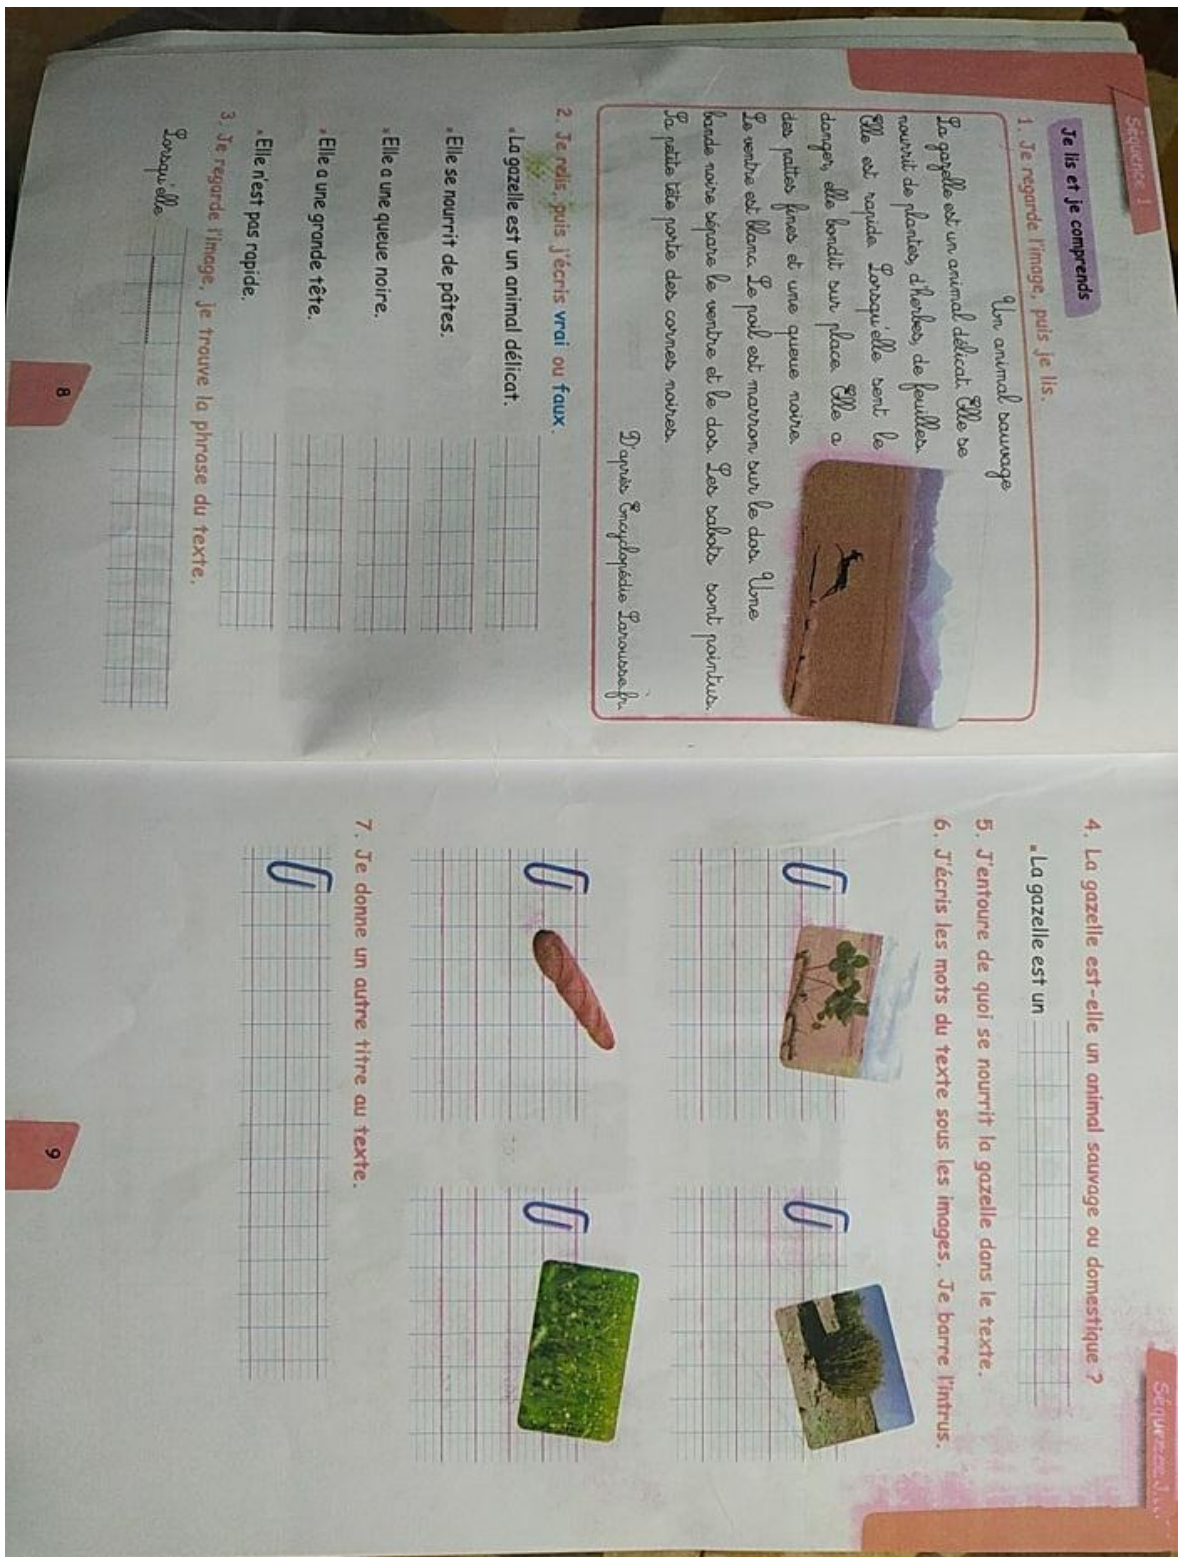 Séquence 1
Je lis et je comprends
1. Je regarde l'image, puis je lis.
Un animal sauvage
La gazelle est un animal délicat. Elle se
nourrit de plantes, d'herbes, de feuilles.
Elle est rapide. Lorsqu'elle sent le
danger, elle bondit sur place. Elle a
des pattes fines et une queue noire.
Le ventre est blanc. Le poil est marron sur le dos. Une
bande noire sépare le ventre et le dos. Les sabots sont pointus.
Sa petite tête porte des cornes noires.
D'après Encyclopédie Larousse.fr
2. Je relis, puis j'écris vrai ou faux.
La gazelle est un animal délicat.
Elle se nourrit de pâtes.
Elle a une queue noire.
Elle a une grande tête.
Elle n'est pas rapide.
3. Je regarde l'image, je trouve la phrase du texte.
Lorsqu'elle
8
Séquence 1
4. La gazelle est-elle un animal sauvage ou domestique ?
La gazelle est un
5. J'entoure de quoi se nourrit la gazelle dans le texte.
6. J'écris les mots du texte sous les images. Je barre l'intrus.
7. Je donne un autre titre au texte.
9